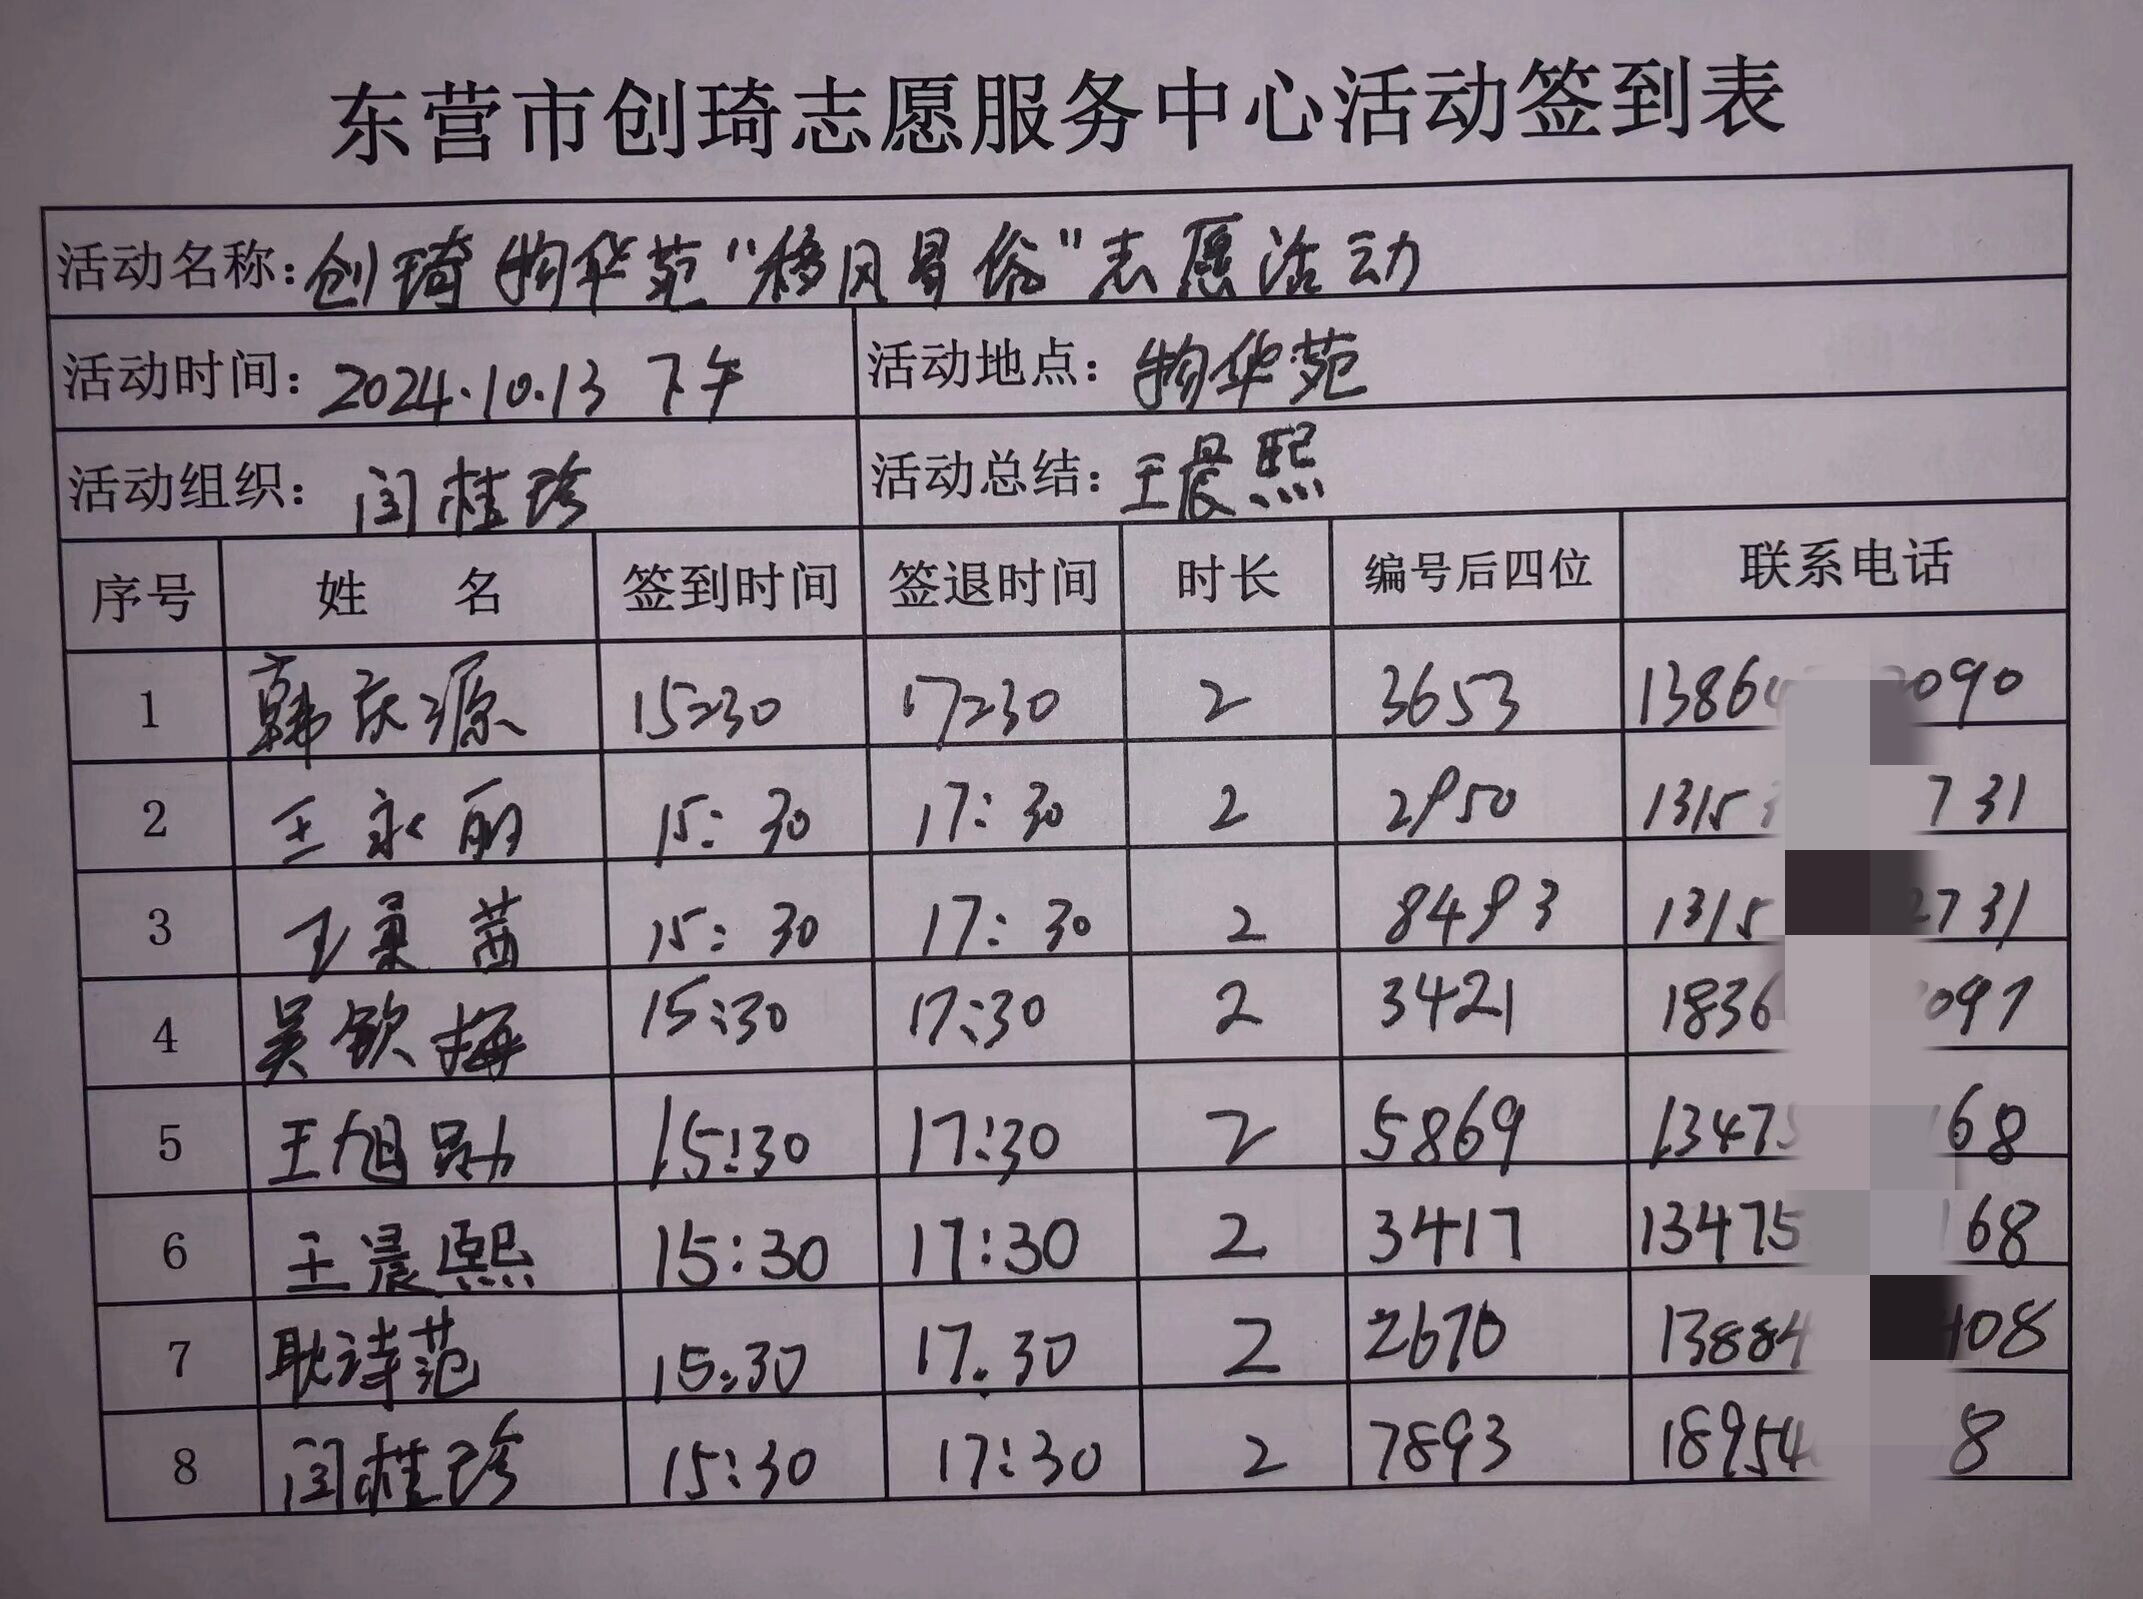 东营市创琦志愿服务中心活动签到表
活动名称：创琦物华苑“移风易俗”志愿活动
活动时间：2024.10.13 下午 活动地点：物华苑
活动组织：闫桂珍 活动总结：王晨熙
序号 姓名 签到时间 签退时间 时长 编号后四位 联系电话
1 韩庆源 15:30 17:30 2 3653 1386 090
2 王永丽 15:30 17:30 2 2950 1315 731
3 王柔茜 15:30 17:30 2 8493 1315 731
4 吴钦梅 15:30 17:30 2 3421 1836 097
5 王旭勋 15:30 17:30 2 5869 13475 168
6 王晨熙 15:30 17:30 2 3417 13475 168
7 耿诗范 15:30 17.30 2 2670 13884 408
8 闫桂珍 15:30 17:30 2 7893 18954 8